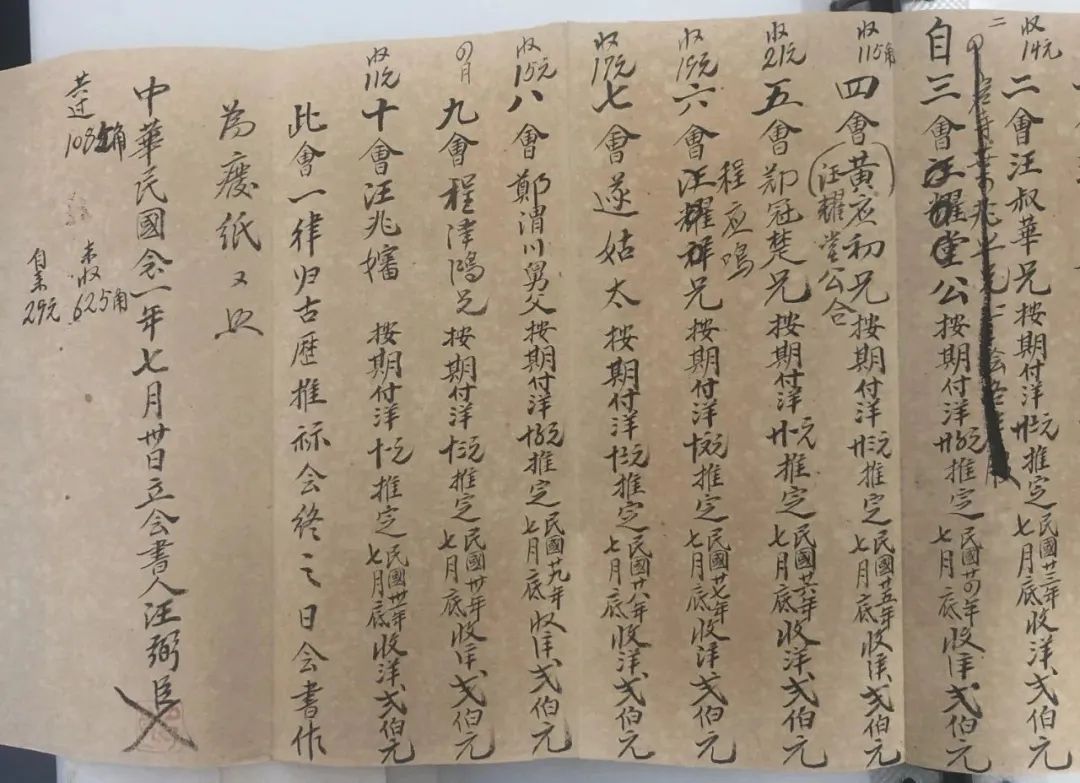 收14元
二會汪叔華兄按期付洋 推定民國廿三年七月底收洋弍伯元
自三會汪耀堂公按期付洋 推定民國廿四年七月底收洋弍伯元
收115角
四會黃衣初兄按期付洋 推定民國廿五年七月底收洋弍伯元
汪耀堂公合
收21元
五會鄭冠楚兄按期付洋 推定民國廿六年七月底收洋弍伯元
程衣鳴
收19元
六會汪耀祥兄按期付洋 推定民國廿七年七月底收洋弍伯元
收17元
七會遂姑太按期付洋 推定民國廿八年七月底收洋弍伯元
收15元
八會鄭渭川舅父按期付洋 推定民國廿九年七月底收洋弍伯元
四月
九會程津鴻兄按期付洋 推定民國卅年七月底收洋弍伯元
收11元
十會汪兆嬸按期付洋 推定民國卅一年七月底收洋弍伯元
此會一律归古歷推祘会終之日会書作
為廢紙又照
中華民國念一年七月 日立会書人汪弼臣
共过
108 角
未收
625角
自来
29元